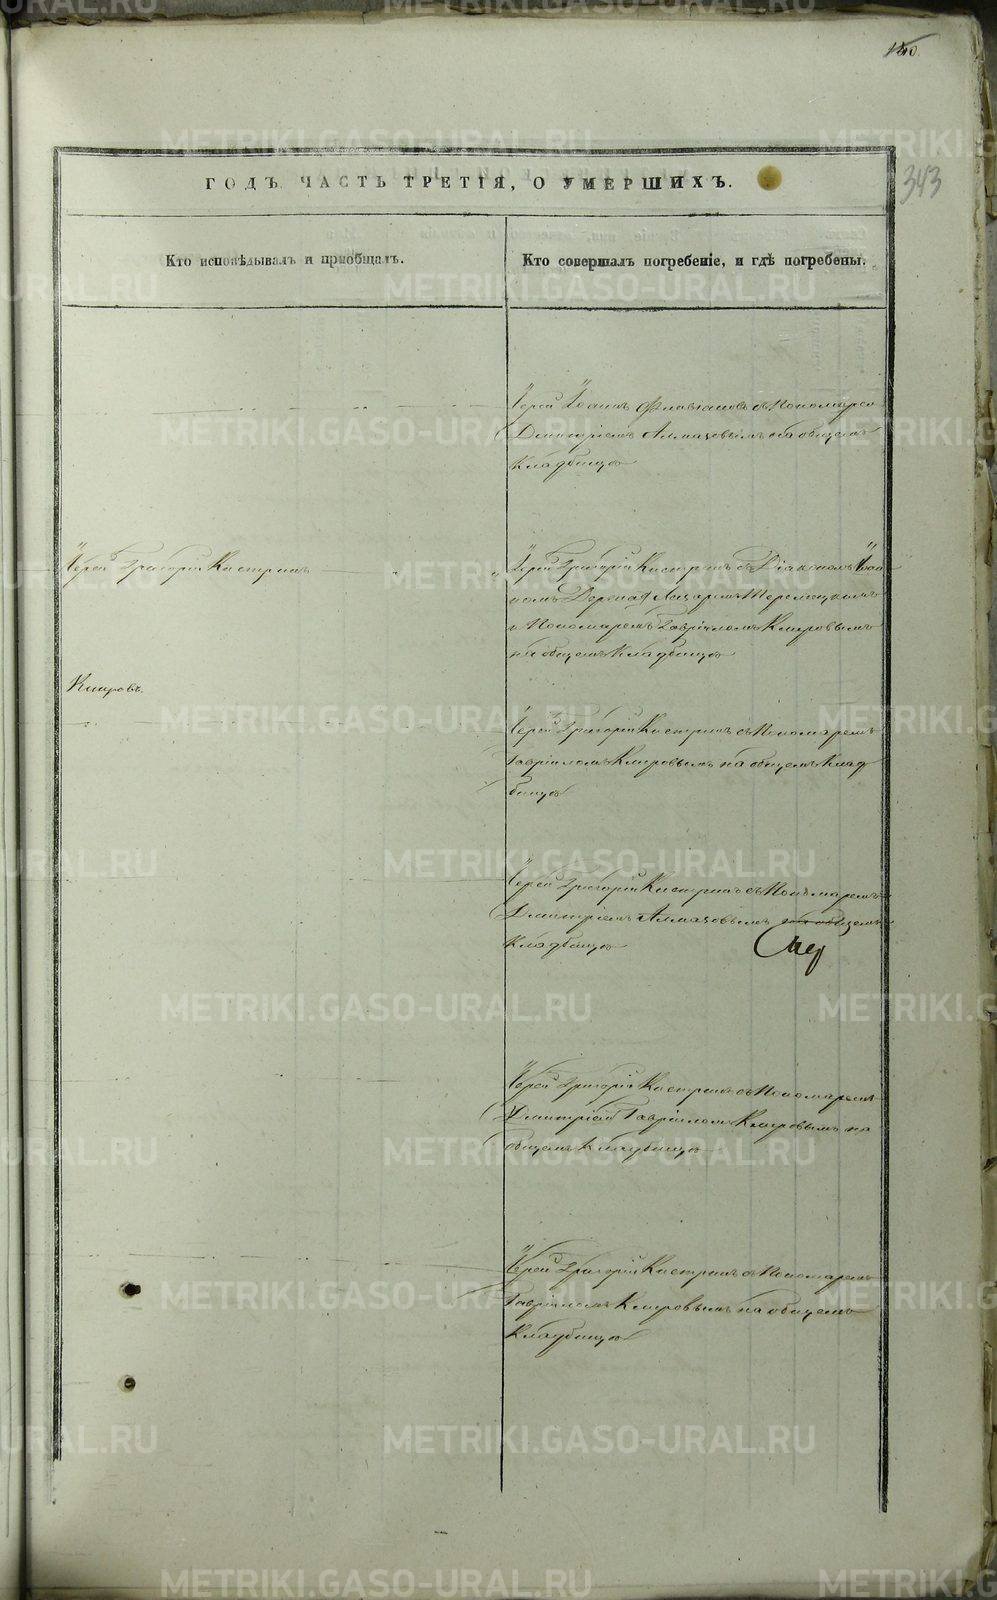 140.
343
ГОДЪ ЧАСТЬ ТРЕТІЯ, О УМЕРШИХЪ.
Кто исповѣдывалъ и пріобщалъ.
Кто совершалъ погребеніе, и гдѣ погребены.
Іерей Іоаннъ Флавіановъ съ Пономаремъ
Димитріемъ Алмазовымъ на общемъ
Кладбищѣ
Іерей Григорій Кастринъ
Іерей Григорій Кастринъ съ Діакономъ Іоан
номъ
и Пономаремъ Гавріиломъ Кмировымъ
на общемъ Кладбищѣ
Кмировъ.
Іерей Григорій Кастринъ съ Пономаремъ
Гавріиломъ Кмировымъ на общемъ Клад
бищѣ
Іерей Григорій Кастринъ съ Пономаремъ
Димитріемъ Алмазовымъ на общемъ
Кладбищѣ
Іерей Григорій Кастринъ съ Пономаремъ
Гавріиломъ Кмировымъ на
общемъ Кладбищѣ
Іерей Григорій Кастринъ съ Пономаремъ
Гавріиломъ Кмировымъ на общемъ
Кладбищѣ
METRIKI.GASO-URAL.RU